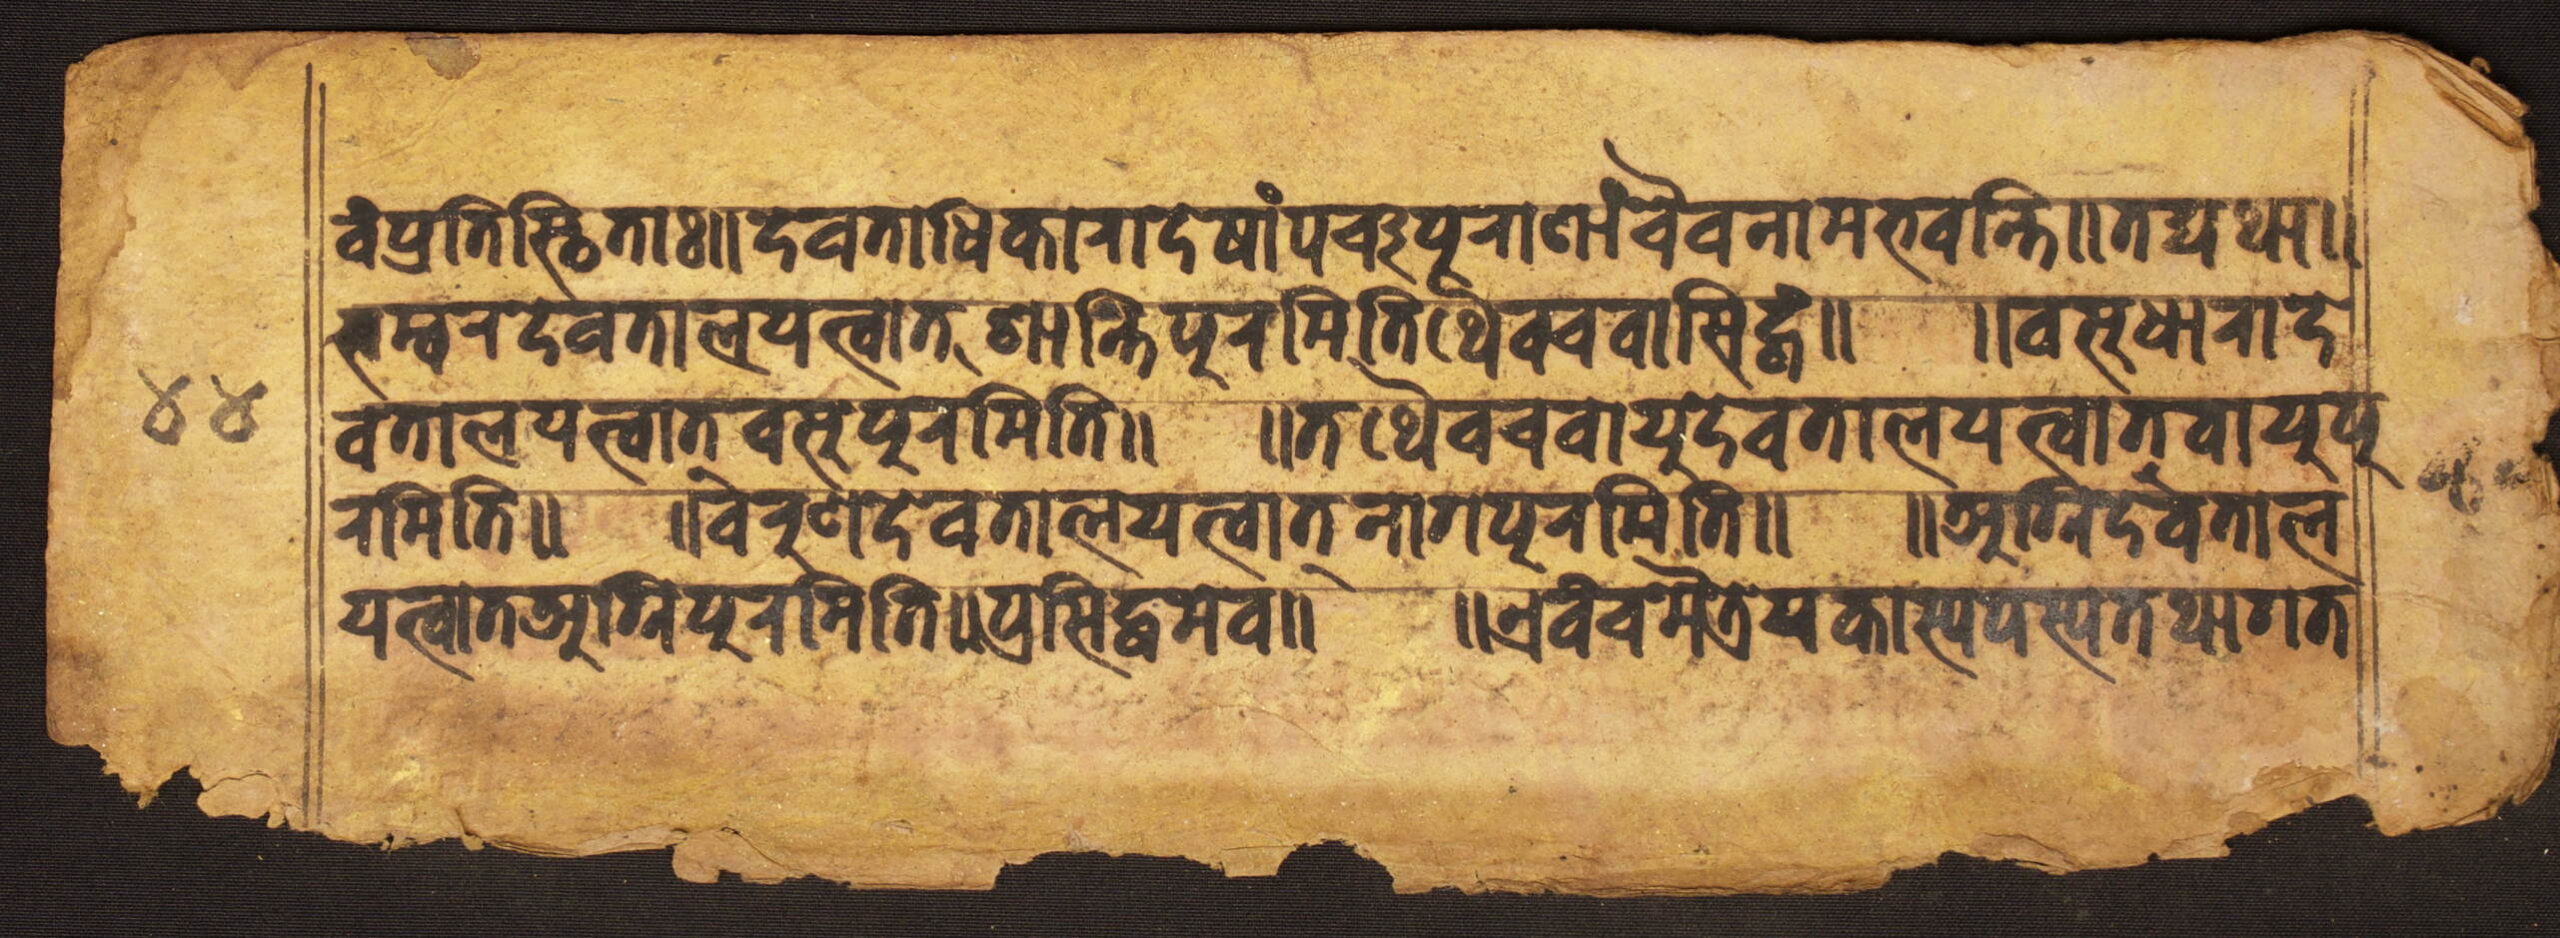 वं प्रतिस्थिताः॥ देवताधिकारादेषां पञ्चपूराणां चैव नाम भवन्ति॥ तद्यथा॥
सम्वरदेवतालयत्वात् शान्तिपूरमिति थैवच वासिद्धं॥ ॥वसूधारादे
४४
वतालयत्वात् वसूपूरमिति॥ ॥तथैवच वायुदेवतालयत्वात् वायुपू
रमिति॥ ॥वरुणदेवतालयत्वात् नागपूरमिति॥ ॥अग्निदेवताल
यत्वात अग्निपूरमिति॥ प्रसिद्धमेव॥ ॥एवंच मैत्रेय कास्यपस्य तथागत